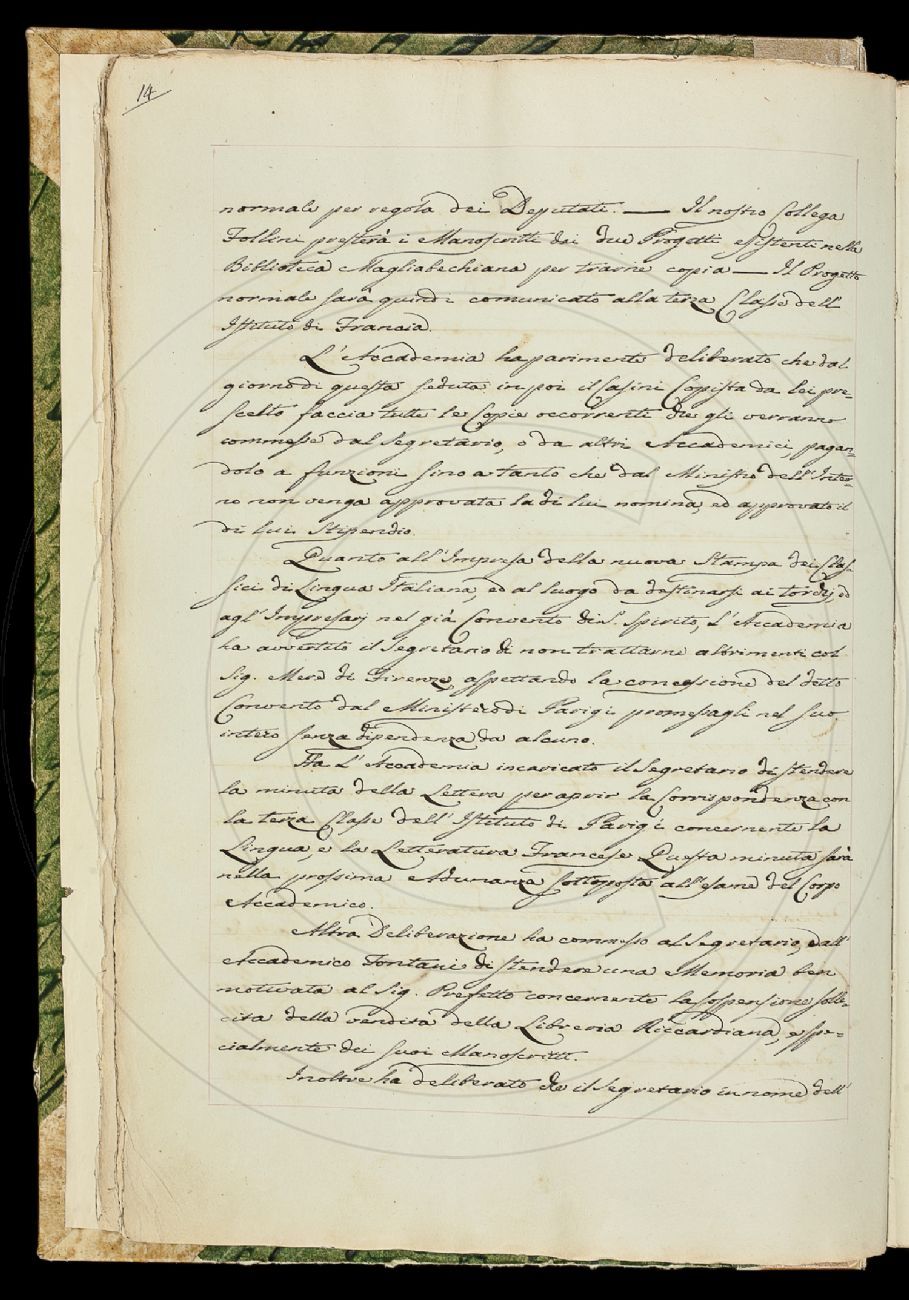 14
normale per regola dei Deputati. — Il nostro Collega
Follini presterà i Manoscritti dei due Progetti esistenti nella
Biblioteca Magliabechiana per trarne copia — Il Progetto
normale sarà quindi comunicato alla terza Classe dell'
Istituto di Francia.
L'Accademia ha parimente deliberato che dal
giorno di questa seduta in poi il Casini Copista da lei pre-
scelto faccia tutte le Copie occorrenti che gli verranno
commesse dal Segretario, o da altri Accademici pagan-
dolo a funzioni sino a tanto che dal Ministro dell'Inter-
no non venga approvata la di lui nomina, ed approvato il
di lui Stipendio.
Quanto all'Impresa della nuova Stampa dei Clas-
sici di Lingua Italiana, ed al luogo da destinarsi ai torchj, ed
agl'Impresarj nel già Convento di S. Spirito, L'Accademia
ha avvertito il Segretario di non trattarne altrimenti col
Sig. Mere di Firenze, aspettando la concessione del detto
Convento dal Ministero di Parigi promessagli nel suo
intero senza dipendenza da alcuno.
Ha L'Accademia incaricato il Segretario di stendere
la minuta della Lettera per aprir la Corrispondenza con
la terza Classe dell'Istituto di Parigi concernente la
Lingua, e la Letteratura Francese. Questa minuta sarà
nella prossima Adunanza sottoposta all'esame del Corpo
Accademico.
Altra Deliberazione ha commesso al Segretario, e all'
Accademico Fontani di stendere una Memoria ben
motivata al Sig. Prefetto concernente la sospensione solle-
cita della vendita della Libreria Riccardiana, e spe-
cialmente dei suoi Manoscritti.
Inoltre ha deliberato che il Segretario in nome dell'